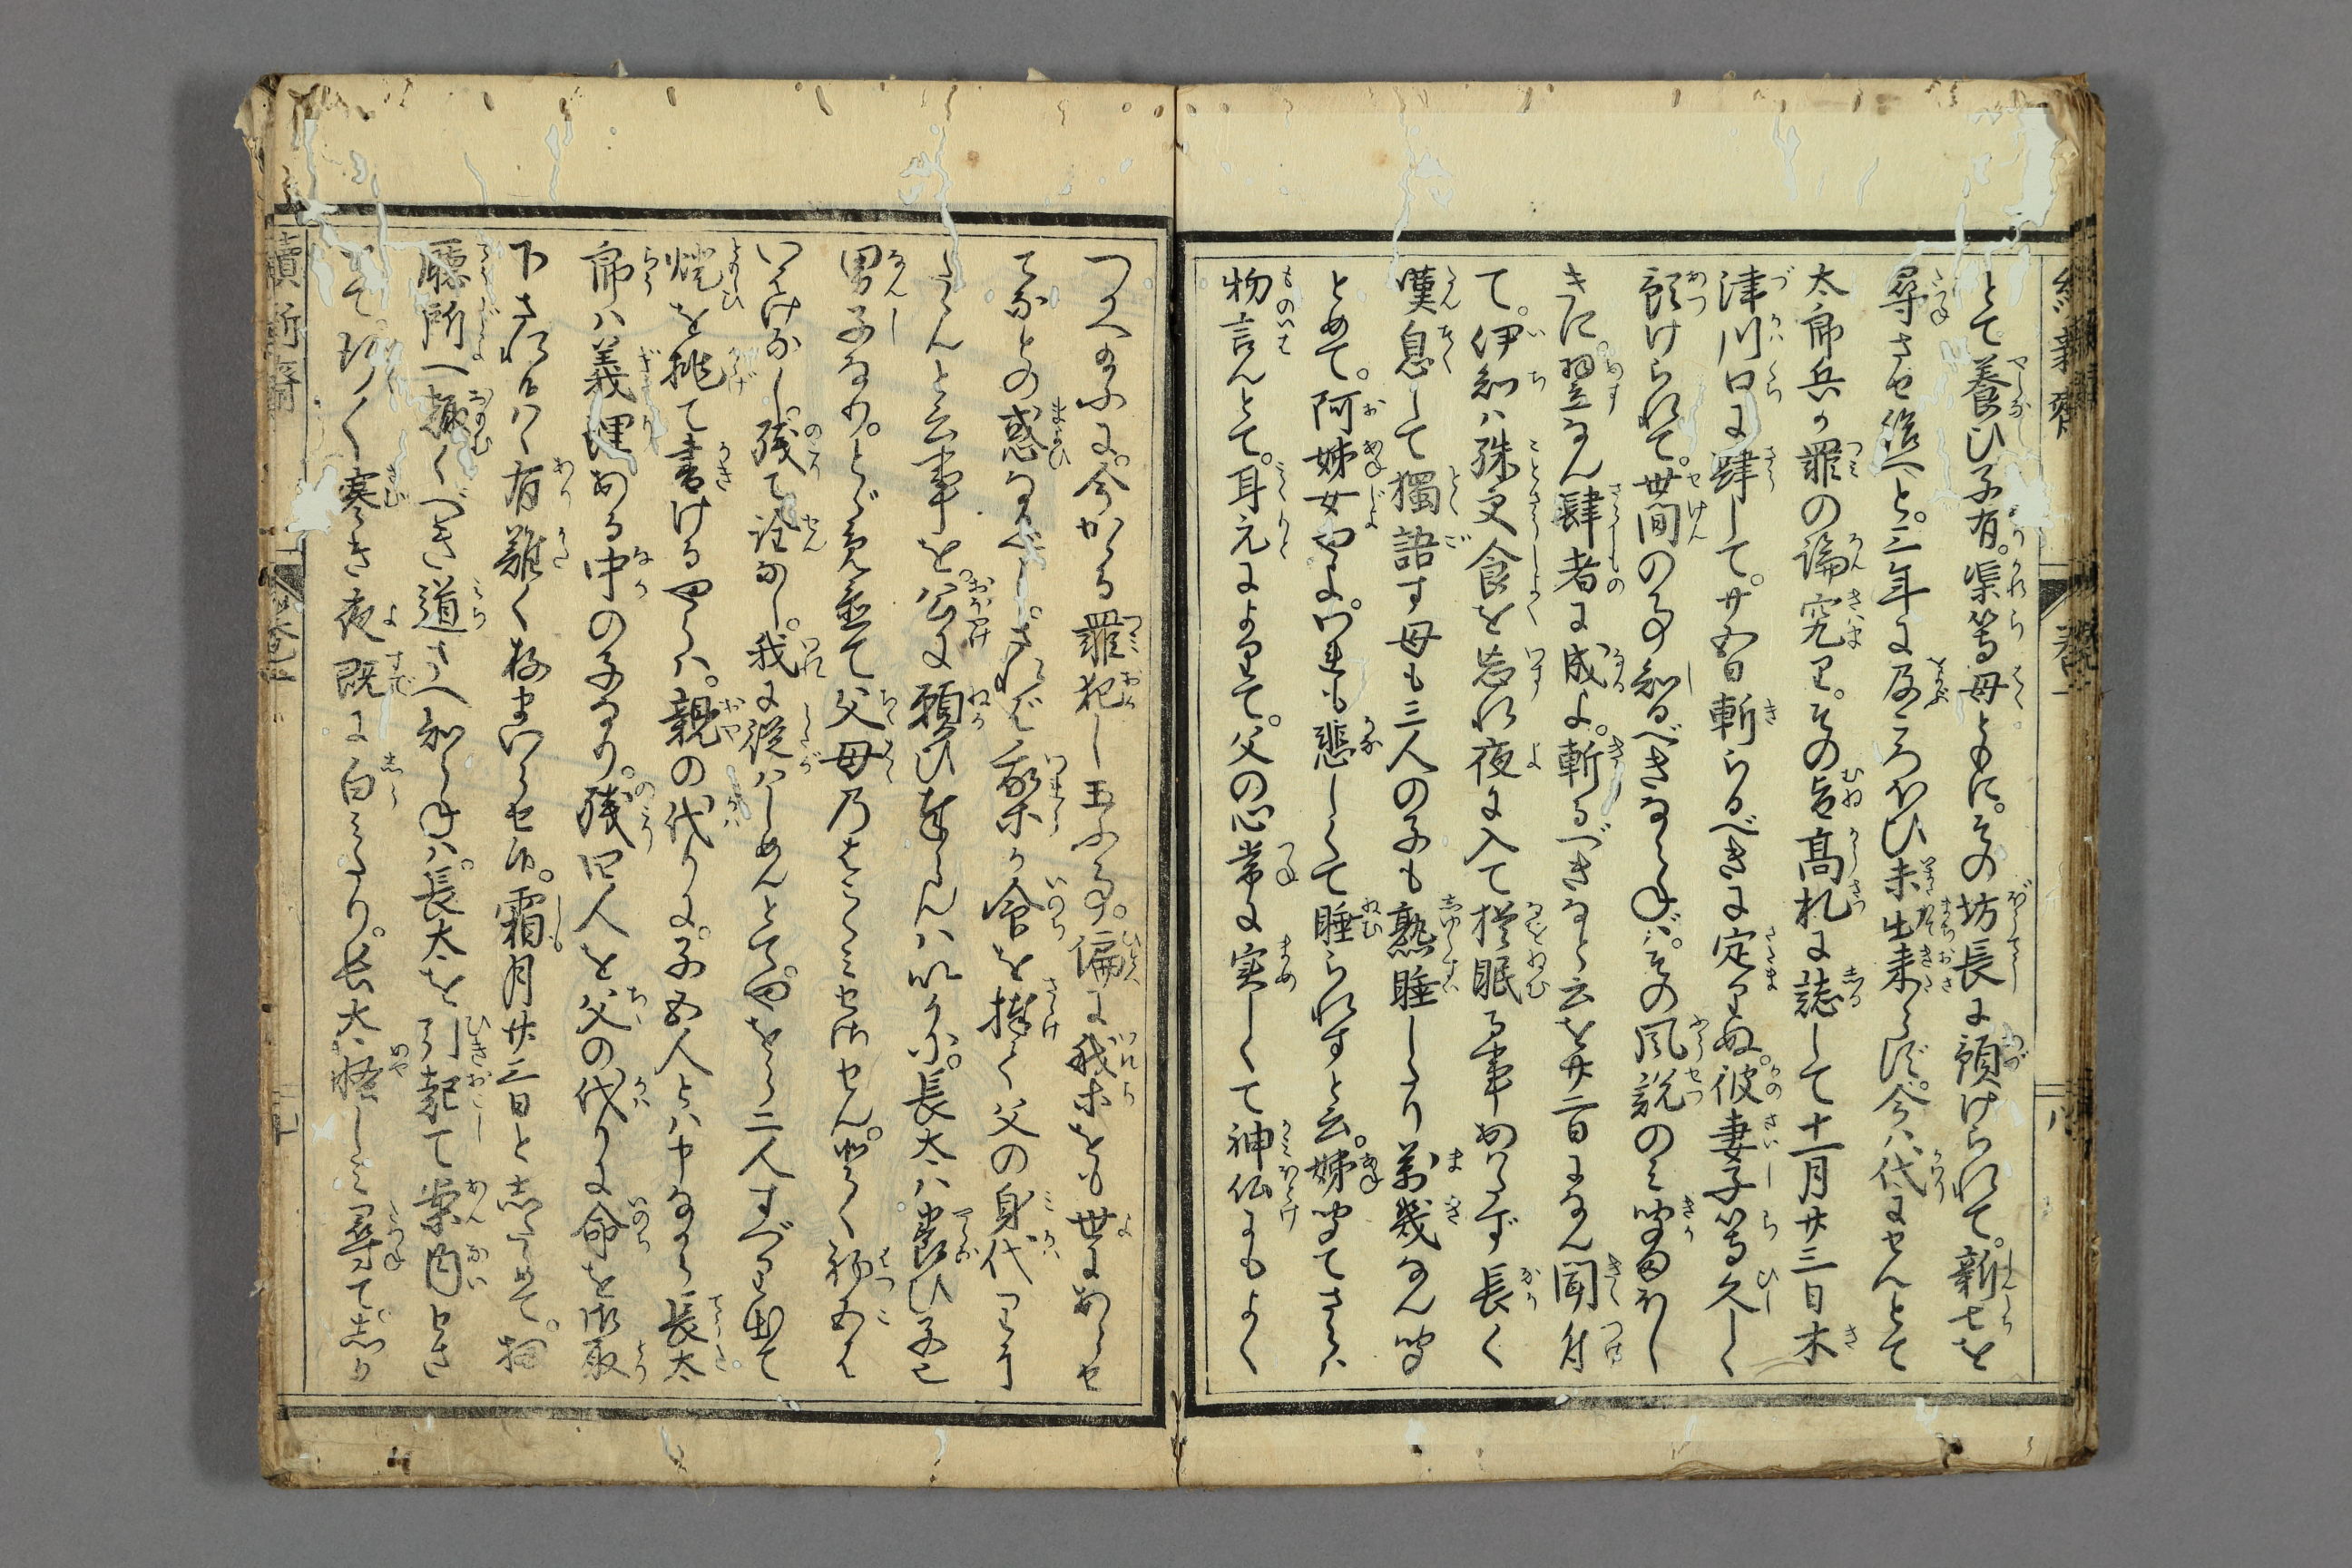 とて養ひ子有。渠等母ともに。その坊長に預けられて。新七を
尋させ給へと。三年に及ころほひ未出来らず。今ハ代にせんとて
太郎兵が罪の論究り。その旨高札に誌して十一月廿三日木
津川口に肆して。廿五日斬らるべきに定りぬ。彼妻子等久しく
預けられて。世間の事知るべきならねば。その風説のミ聞まほし
きに。翌なん肆者に成よ。斬るべきなど云を廿二日になん聞付
て。伊知ハ殊更食を忘れ夜に入て従眠る事あたハず長く
嘆息して獨語す母も三人の子も熟睡したり万幾なん聞
とめて。阿姉女やよ。いまも悲しくて睡られずと云。姉聞てさらバ
物言んとて。耳元によりて。父の心常に実しくて神仏にもよく
つへ給ふに。今かゝる罪犯し玉ふ事。偏に我等をも世にあらせ
てなどの惑なるべし。されば我等が命を捧て父の身代りに
たゝんと云事を。公に願ひ奉らんハいかに。長太ハ養ひ子に
男子なり。とゞめ置て父母のはごくミせさせん。
いはけなし。残て詮なし。我に従ハしめんとて。やをら二人すべり出て
燈を挑て書けるやうハ。親の代りに。子五人とハ申ながら長太
郎ハ義理ある中の子なり。残四人を父の代りに命を御取
下され候ハヾ有難く存まいらせ候。霜月廿三日としたゝめて。扨
廳所へ趣くべき道さへ知らねバ。長太を引起て案内とさ
して。行く寒き夜既に白ミたり。長太ハ怪しミ尋てしか
續新齋
巻一
八